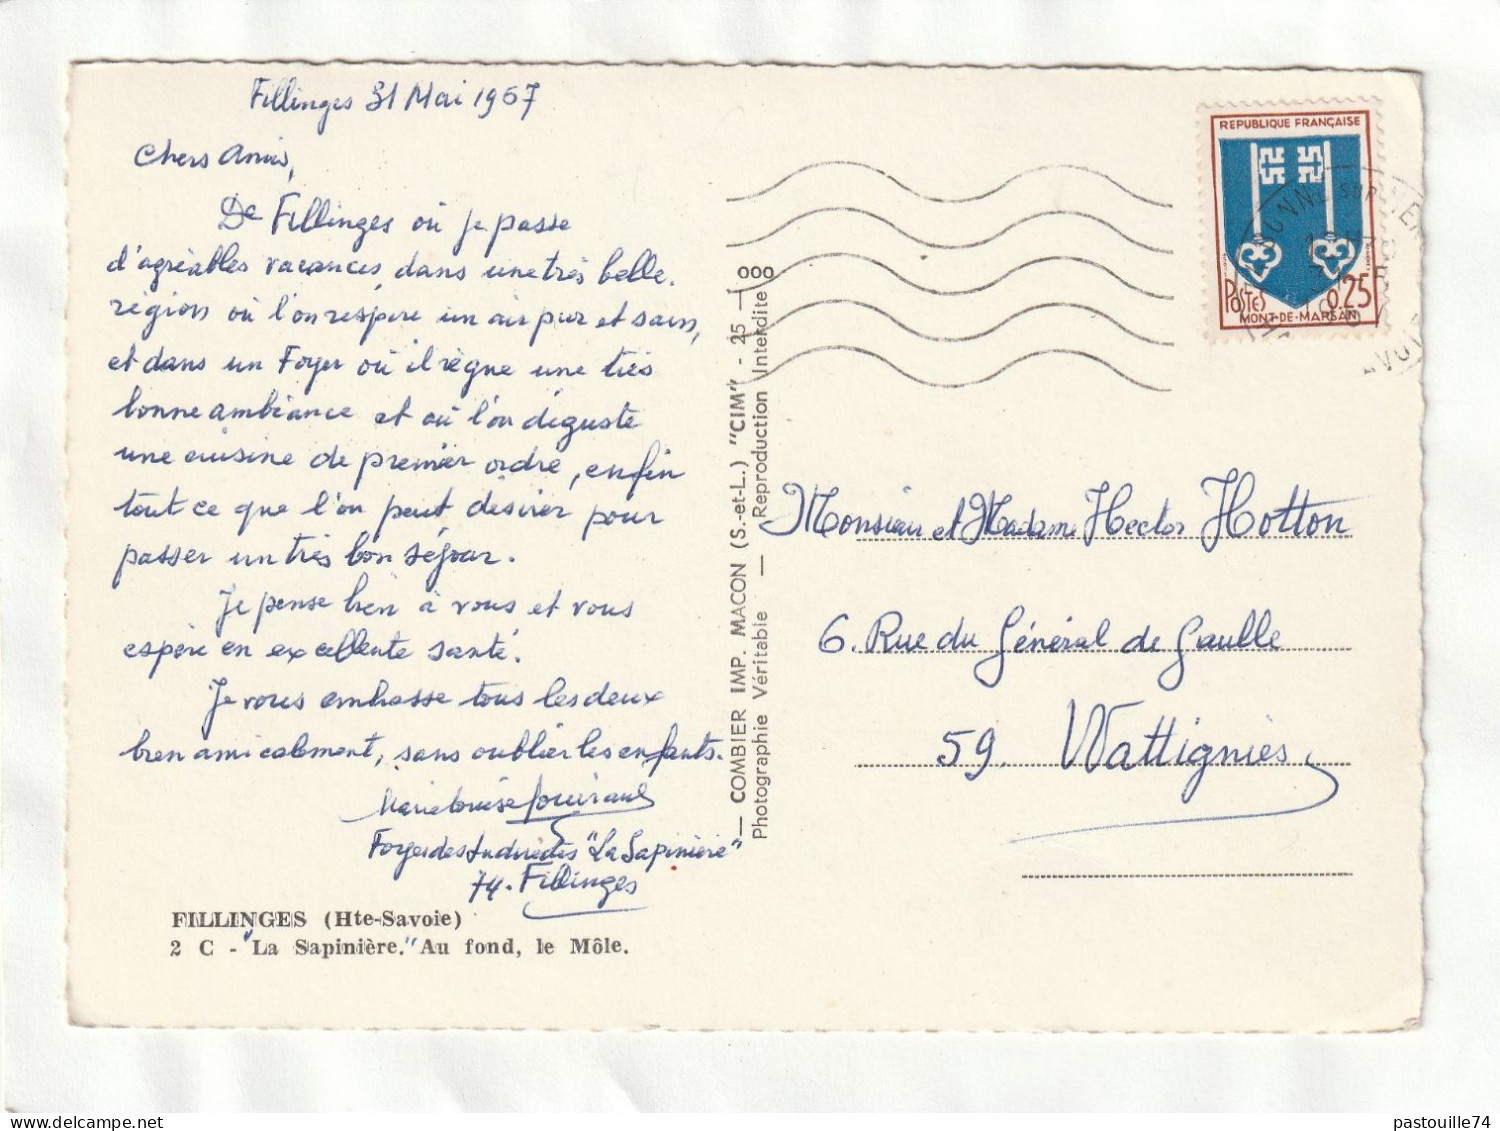 Fillinges 31 Mai 1967
Chers Amis,
De Fillinges où je passe
d'agréables vacances, dans une très belle
région où l'on respire un air pur et sain,
et dans un Foyer où il règne une très
bonne ambiance et où l'on déguste
une cuisine de premier ordre, enfin
tout ce que l'on peut désirer pour
passer un très bon séjour.
Je pense bien à vous et vous
espère en excellente santé.
Je vous embrasse tous les deux
bien amicalement, sans oublier les enfants.
Marie Louise
Foyer des "La Sapinière"
74. Fillinges
FILLINGES (Hte-Savoie)
2 C - "La Sapinière." Au fond, le Môle.
— COMBIER IMP. MACON (S.-et-L.) "CIM" - 25 — 000
Photographie Véritable — Reproduction Interdite
REPUBLIQUE FRANÇAISE
POSTES 0,25
MONT-DE-MARSAN
Monsieur et Madame Hector Hotton
6. Rue du Général de Gaulle
59. Wattignies
pastouille74